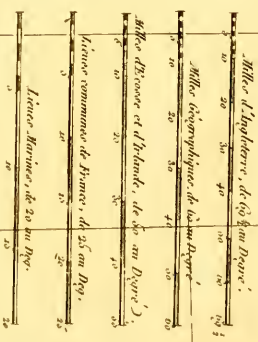 Milles d'Angleterre, de 69½ au Degré.
5 10 20 30 40 50 60 69½
Milles Géographiques, de 60 au Degré
5 10 20 30 40 50 60
Milles d'Ecosse et d'Irlande, de 50 au Degré.
5 10 20 30 40 50
Lieues communes de France, de 25 au Deg.
5 10 15 20 25
Lieues Marines, de 20 au Deg.
5 10 15 20